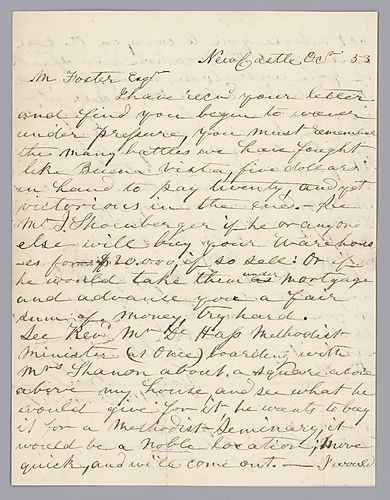 New Castle Oct 53
Wm Foster Esqr
I have recd your letter
and find you begin to waver
under pressure, you must remember
the many battles we have fought
like Buena vista, five dollars
in hand to pay twenty, and yet
victorious in the end. - See
Mr J. Shoenberger if he or anyone
else will buy your Warehous
-es for $20.000, if so sell: Or if
he would take them under mortgage
and advance you a fair
sum of money, try hard.
See Revd Mr De Hass Methodist
Minister (at Once) boarding with
Mrs Shanon about a square above
above my house and see what he
would give for it, he wants to buy
it for a Methodist Seminary, it
would be a Noble location; move
quick, and will come out. — I would